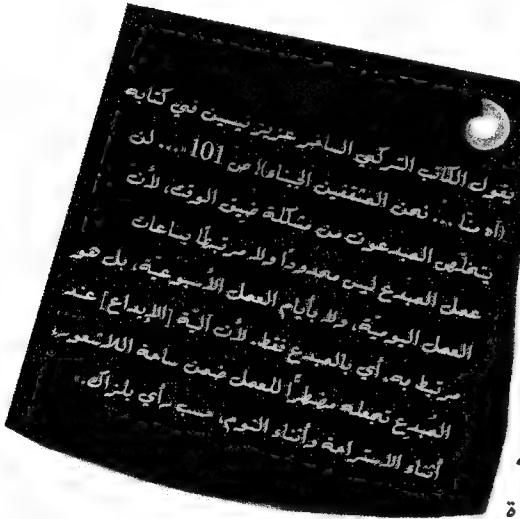 يقول الكاتب التركي الساخر عزيز نيسين في كتابه
(آه منّا ... نحن المثقفين الجبناء)/ ص 101 «... لن
يتخلّص المبدعون من مشكلة ضيق الوقت، لأنّ
عمل المبدع ليس محدوداً ولا مرتبطاً بساعات
العمل اليوميّة، ولا بأيام العمل الأسبوعيّة، بل هو
مرتبط به، أي بالمبدع فقط. لأن آليّة [الإبداع] عند
المبدع تجعله مضطراً للعمل ضمن ساحة اللاشعور،
أثناء الاستراحة وأثناء النوم، حسب رأي بلزاك.»
ة